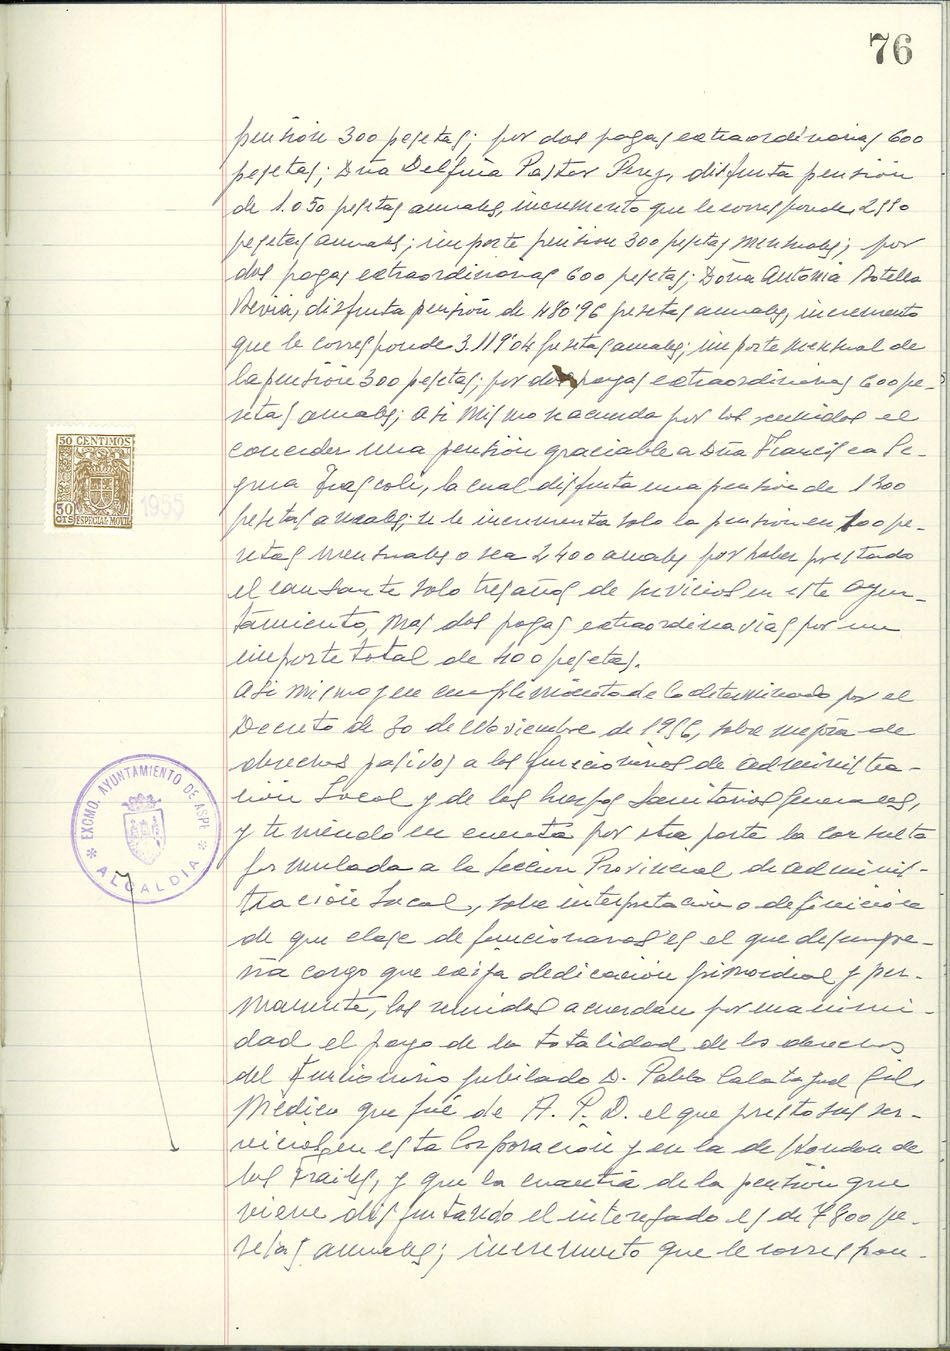 76
pensión 300 pesetas; por dos pagas extraordinarias 600
pesetas; Dña Delfina Pastor Perez, disfruta pensión
de 1.050 pesetas anuales, incremento que le corresponde, 2550
pesetas anuales; importe pension 300 pesetas mensuales; por
dos pagas extraordinarias 600 pesetas; Doña Antonia Botella
disfruta pensión de 480'96 pesetas anuales, incremento
que le corresponde 3.119'04 pesetas anuales; importe mensual de
la pensión 300 pesetas; por dos pagas extraordinarias 600 pe-
setas anuales; asi mismo se acuerda por los reunidos el
conceder una pensión graciable a Dña Francisca
la cual disfruta una pension de 1200
pesetas anuales; se le incrementa solo la pension en 100 pe-
setas mensuales o sea 2400 anuales por haber prestado
el causante solo tres años de servicios en este Ayun-
tamiento, mas dos pagas extraordinarias por un
importe total de 400 pesetas.
Asi mismo y en cumplimiento de lo determinado por el
Decreto de 30 de Noviembre de 1956, sobre mejora de
derechos pasivos a los funcionarios de administra-
ción Local y de los Cuerpos Sanitarios Generales,
y teniendo en cuenta por otra parte la consulta
formulada a la Seccion Provincial de adminis-
tración Local, sobre interpretación o definición
de que clase de funcionarios es el que desempe-
ña cargo que exija dedicación primordial y per-
manente, los reunidos acuerdan por unanimi-
dad el pago de la totalidad de los derechos
del funcionario jubilado D. Pablo Calatayud Gil,
Médico que fué de A. P. D. el que presto sus ser-
vicios en esta Corporación y en la de Hondon de
los Frailes, y que la cuantia de la pensión que
viene disfrutando el interesado es de 7800 pe-
setas anuales; incremento que le correspon-
50 CENTIMOS
50
50
CTS
ESPECIAL MOVIL
1955
EXCMO. AYUNTAMIENTO DE ASPE
* ALCALDIA *